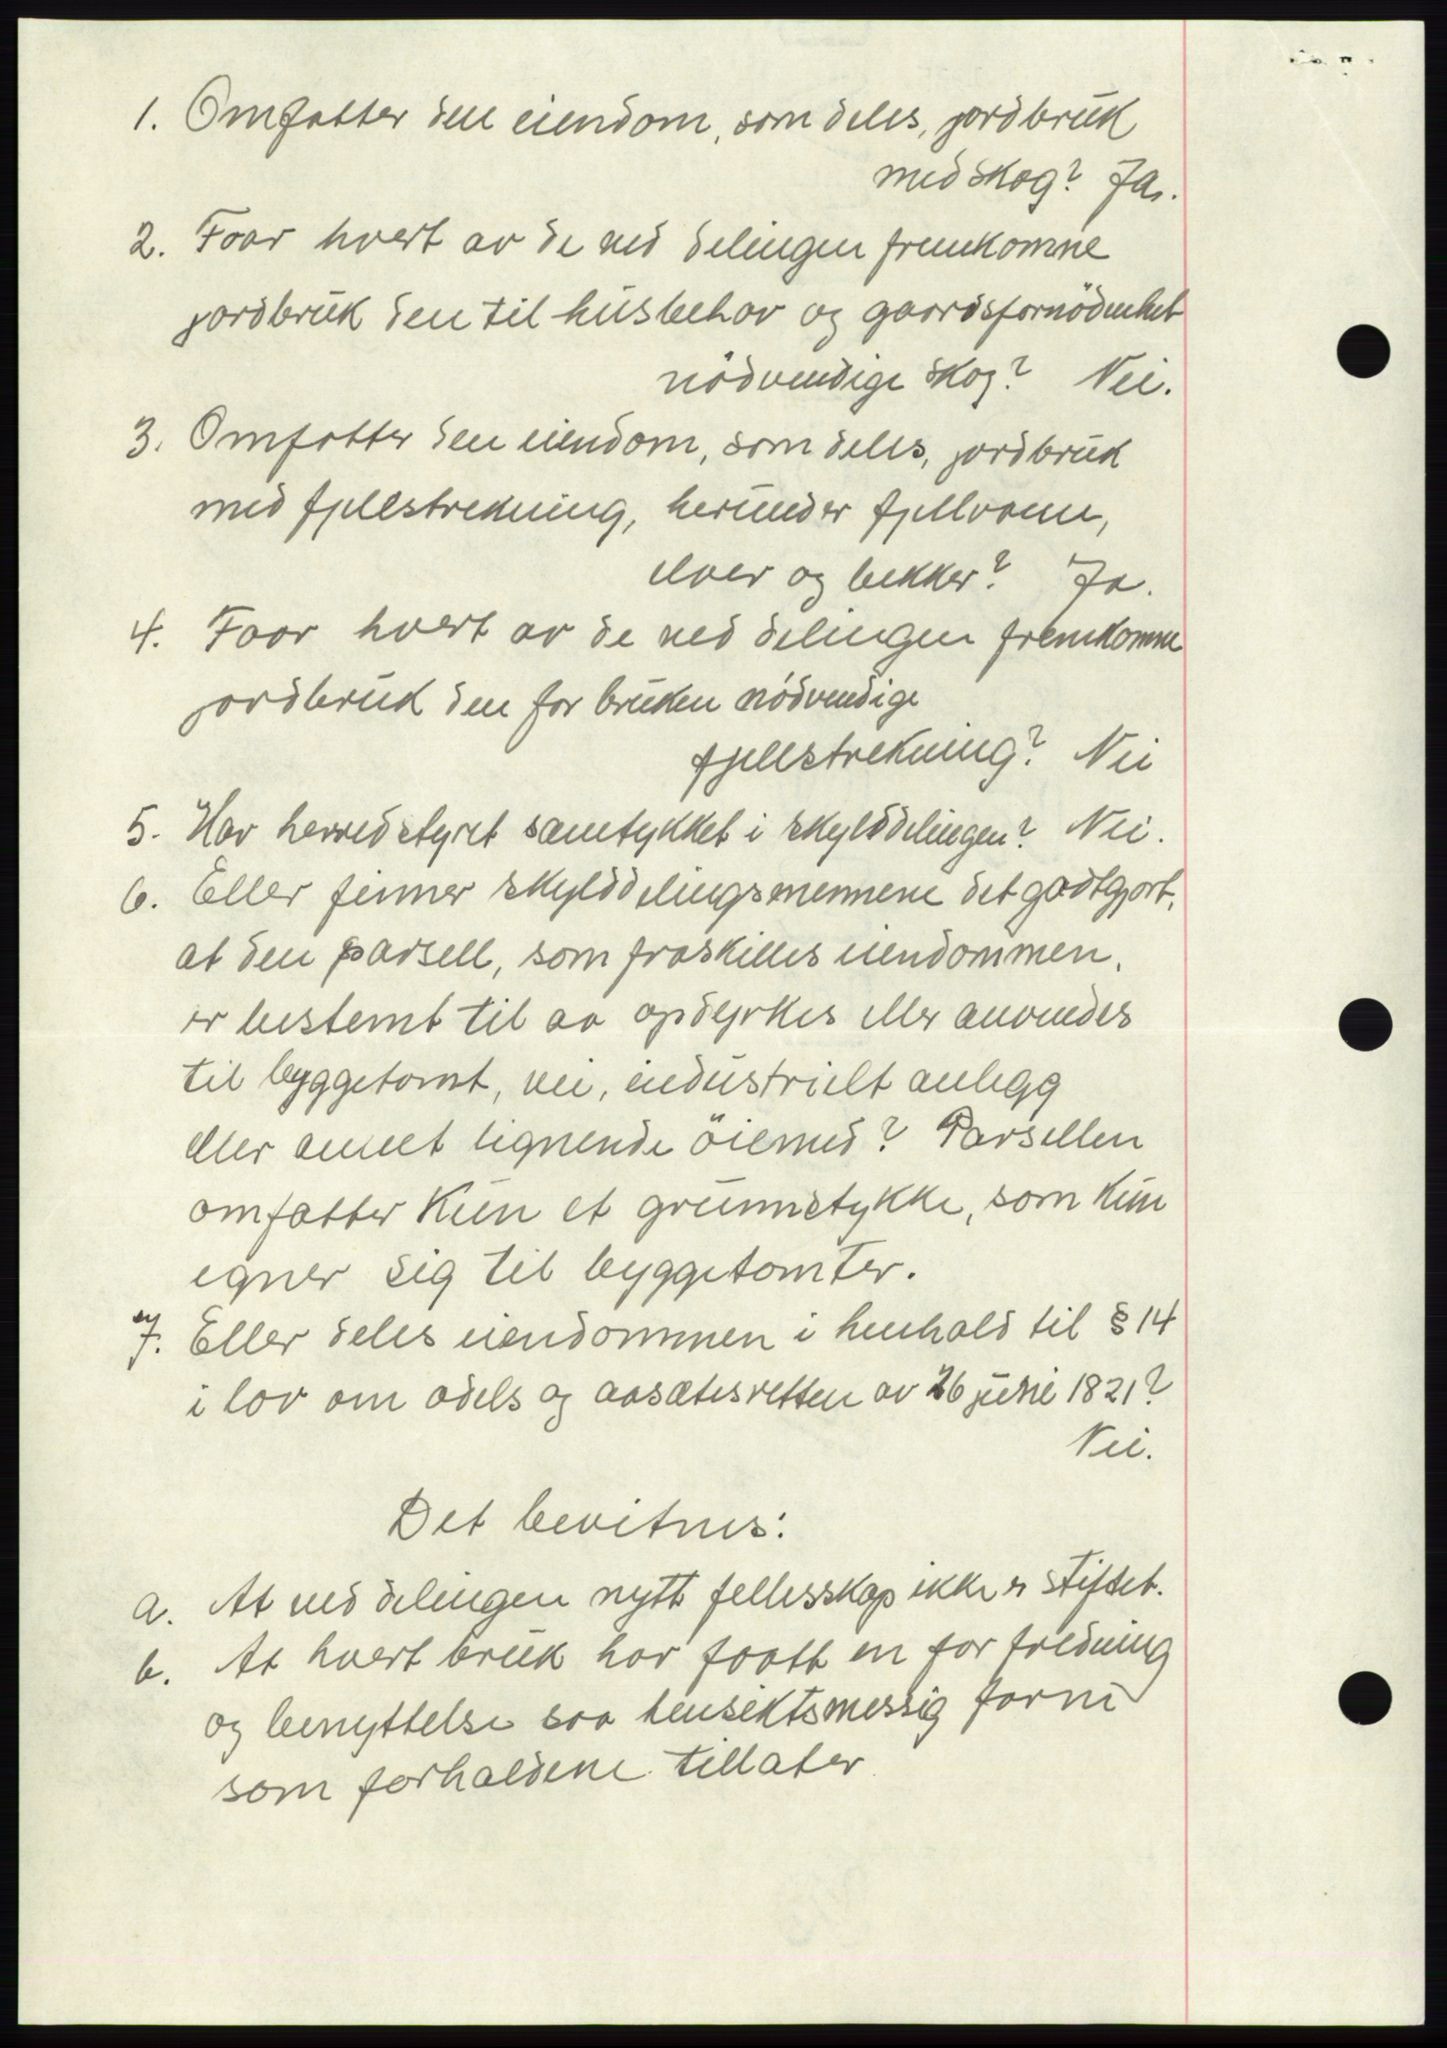 1. Omfatter den eiendom, som deles, jordbruk
med skog? Ja.
2. Faar hvert av de ved delingen fremkomne
jordbruk den til husbehov og gaardsfornödenhet
nödvendige skog? Nei.
3. Omfatter den eiendom, som deles, jordbruk
med fjellstrekning, herunder fjellvann,
elver og bekker? Ja.
4. Faar hvert av de ved delingen fremkomne
jordbruk den for bruken nödvendige
fjellstrekning? Nei
5. Har herredstyret samtykket i skylddelingen? Nei.
6. Eller finner skylddelingsmennene det godtgjort,
at den parsell, som fraskilles eiendommen,
er bestemt til aa opdyrkes eller anvendes
til byggetomt, vei, industrielt anlegg
eller annet lignende öiemed? Parsellen
omfatter kun et grunnstykke, som kun
egner sig til byggetomter.
7. Eller deles eiendommen i henhold til § 14
i lov om odels og aasætesretten av 26 juni 1821?
Nei.
Det bevitnes:
a. At ved delingen nytt fellesskap ikke er stiftet.
b. At hvert bruk har faatt en for fredning
og benyttelse saa hensiktsmessig form
som forholdene tillater